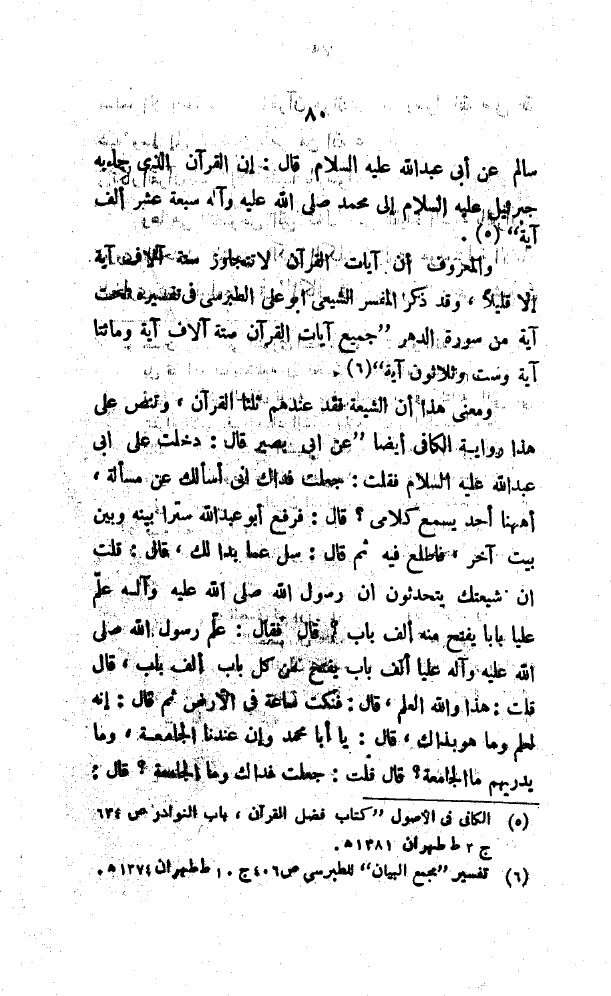 ٨٠
سالم عن أبى عبدالله عليه السلام قال : إن القرآن الذى جاء به
جبرائيل عليه السلام إلى محمد صلى الله عليه وآله سبعة عشر ألف
آية" (٥) .
والمعروف أن آيات القرآن لا تتجاوز ستة آلاف آية
إلا قليلاً ، وقد ذكر المفسر الشيعى ابو على الطبرسى فى تفسيره تحت
آية من سورة الدهر "جميع آيات القرآن ستة آلاف آية ومائتا
آية وست وثلاثون آية"(٦)
ومعنى هذا أن الشيعة فقد عندهم ثلثا القرآن ، وتنص على
هذا رواية الكافى أيضا "عن ابى بصير قال : دخلت على ابى
عبدالله عليه السلام فقلت : جعلت فداك انى أسألك عن مسألة ،
أههنا أحد يسمع كلامى ؟ قال : فرفع أبو عبدالله سترا بينه وبين
بيت آخر ، فاطلع فيه ثم قال : سل عما بدا لك ، قال : قلت
ان شيعتك يتحدثون ان رسول الله صلى الله عليه وآله علّم
عليا بابا يفتح منه ألف باب ؟ قال فقال : علّم رسول الله صلى
الله عليه وآله عليا ألف باب يفتح من كل باب ألف باب ، قال
قلت : هذا والله العلم ، قال : فنكت ساعة فى الأرض ثم قال : إنه
لعلم وما هو بذاك ، قال : يا أبا محمد وإن عندنا الجامعة ، وما
يدريهم ما الجامعة؟ قال قلت : جعلت فداك وما الجامعة ؟ قال :
(٥) الكافى فى الاصول "كتاب فضل القرآن ، باب النوادر ص ٦٣٤
ج ٢ ط طهران ١٣٨١ه‍ .
(٦) تفسير "مجمع البيان" للطبرسى ص٤٠٦ ج ١٠ ط طهران ١٣٧٤ه‍ .